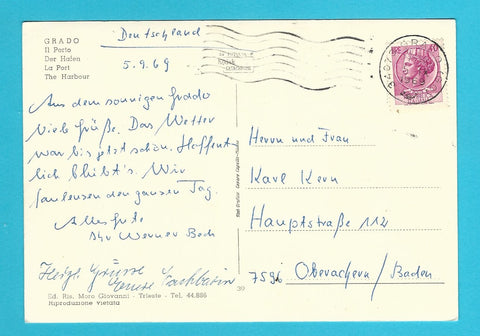 GRADO
Il Porto
Der Hafen
La Port
The Harbour
Deutschland
5.9.69
Aus dem sonnigen Grado
viele Grüße. Das Wetter
war bis jetzt schön. Hoffent
lich bleibt's. Wir
faulenzen den ganzen Tag.
Alles Gute
Ihr Werner Bech
Herzl. Grüsse
Herrn und Frau
Karl Kern
Hauptstraße 112
7596 Oberachern / Baden
30
Ed. Ris. Moro Giovanni - Trieste - Tel. 44.886
Riproduzione Vietata